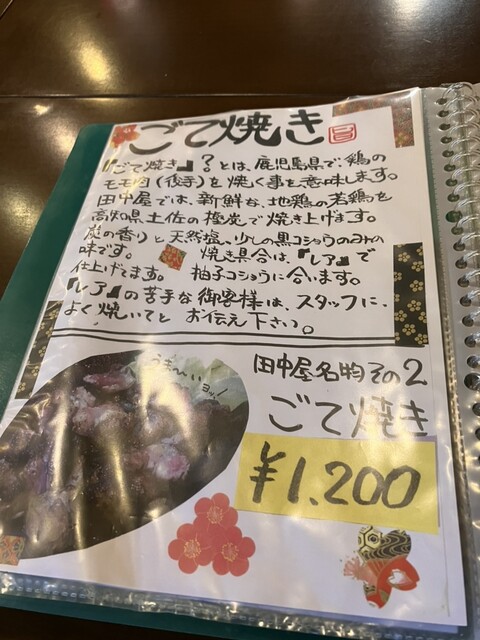 ごて焼き
『ごて焼き』?とは、鹿児島県で、鶏の
モモ肉(後手)を焼く事を意味します。
田中屋では、新鮮な、地鶏の若鶏を
高知県土佐の極炭で焼き上げます。
炭の香りと天然塩、少しの黒コショウのみの
味です。 焼き具合は、『レア』で
仕上げてます。 柚子コショウに合います。
『レア』の苦手な御客様は、スタッフに、
よく焼いてと お伝え下さい。
うま〜いョッ!
田中屋名物その2
ごて焼き
¥1,200